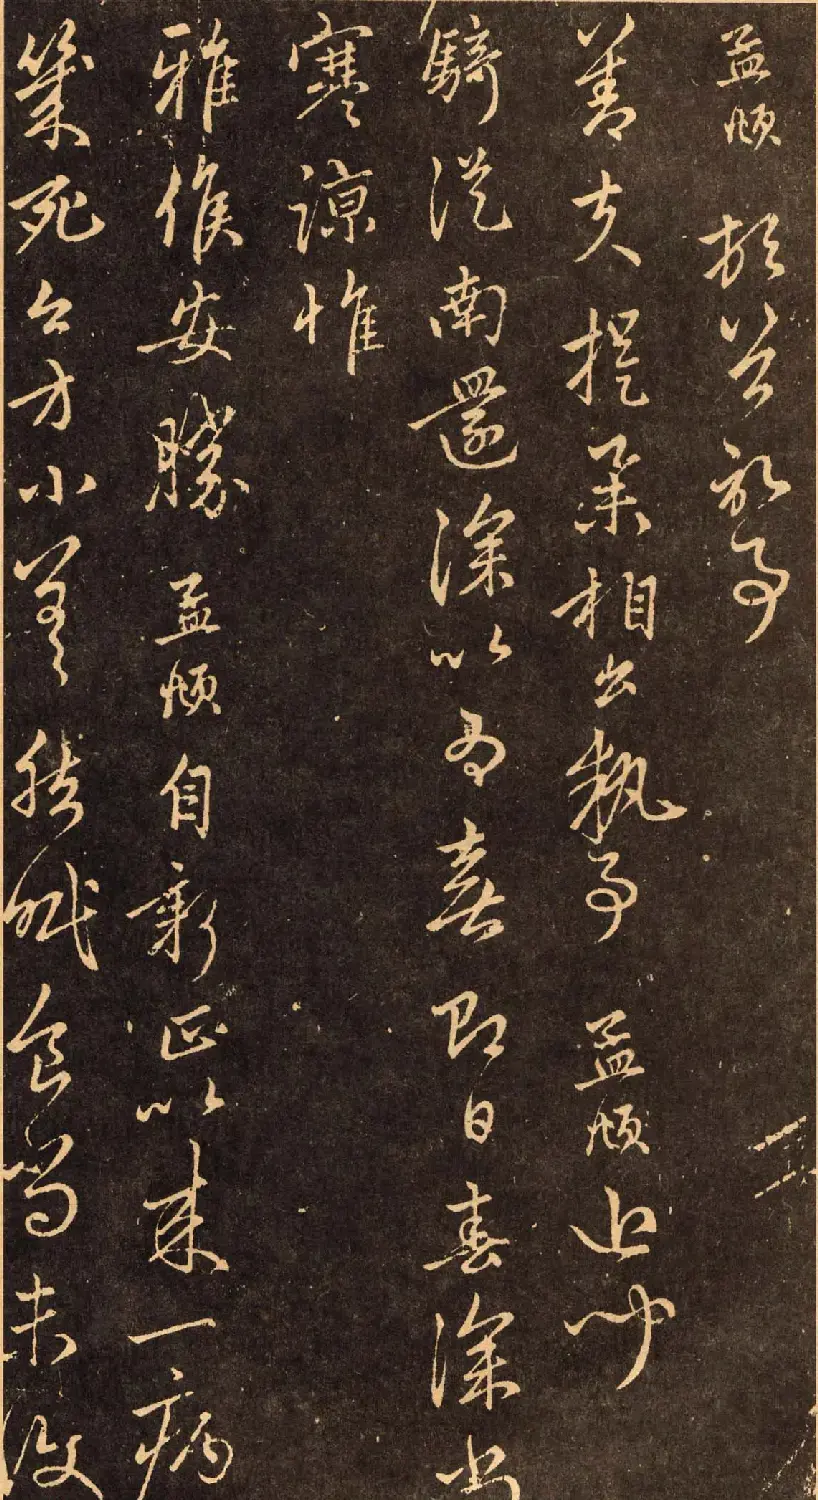 孟頫
善夫提舉相公執事孟頫近聞
騎從南還深以為喜即日春深尚
寒諒惟
雅候安勝孟頫自新正以來一病
幾死今方小差然眠食尚未復